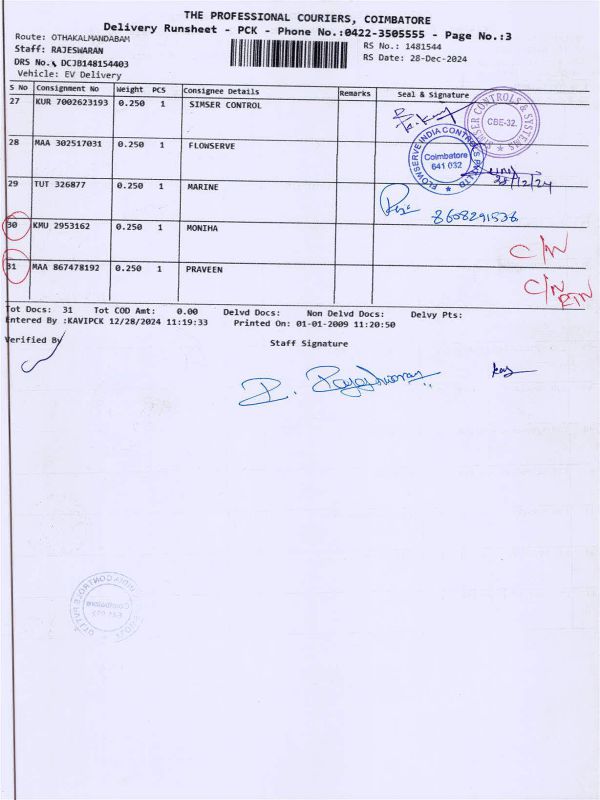 THE PROFESSIONAL COURIERS, COIMBATORE
Delivery Runsheet - PCK - Phone No.:0422-3505555 - Page No.:3
Route: OTHAKALMANDABAM
RS No.: 1481544
Staff: RAJESWARAN
RS Date: 28-Dec-2024
DRS No.: DCJB148154403
Vehicle: EV Delivery
S No Consignment No Weight PCS Consignee Details Remarks Seal & Signature
27 KUR 7002623193 0.250 1 SIMSER CONTROL
SIMSER CONTROLS & SYSTEMS
CBE-32.
28 MAA 302517031 0.250 1 FLOWSERVE
FLOWSERVE INDIA CONTROLS PVT LTD
Coimbatore
641 032
28/12/24
29 TUT 326877 0.250 1 MARINE
8608291536
30 KMU 2953162 0.250 1 MONIHA
C/N
31 MAA 867478192 0.250 1 PRAVEEN
C/N
RTN
Tot Docs: 31 Tot COD Amt: 0.00 Delvd Docs: Non Delvd Docs: Delvy Pts:
Entered By :KAVIPCK 12/28/2024 11:19:33 Printed On: 01-01-2009 11:20:50
Verified By
Staff Signature